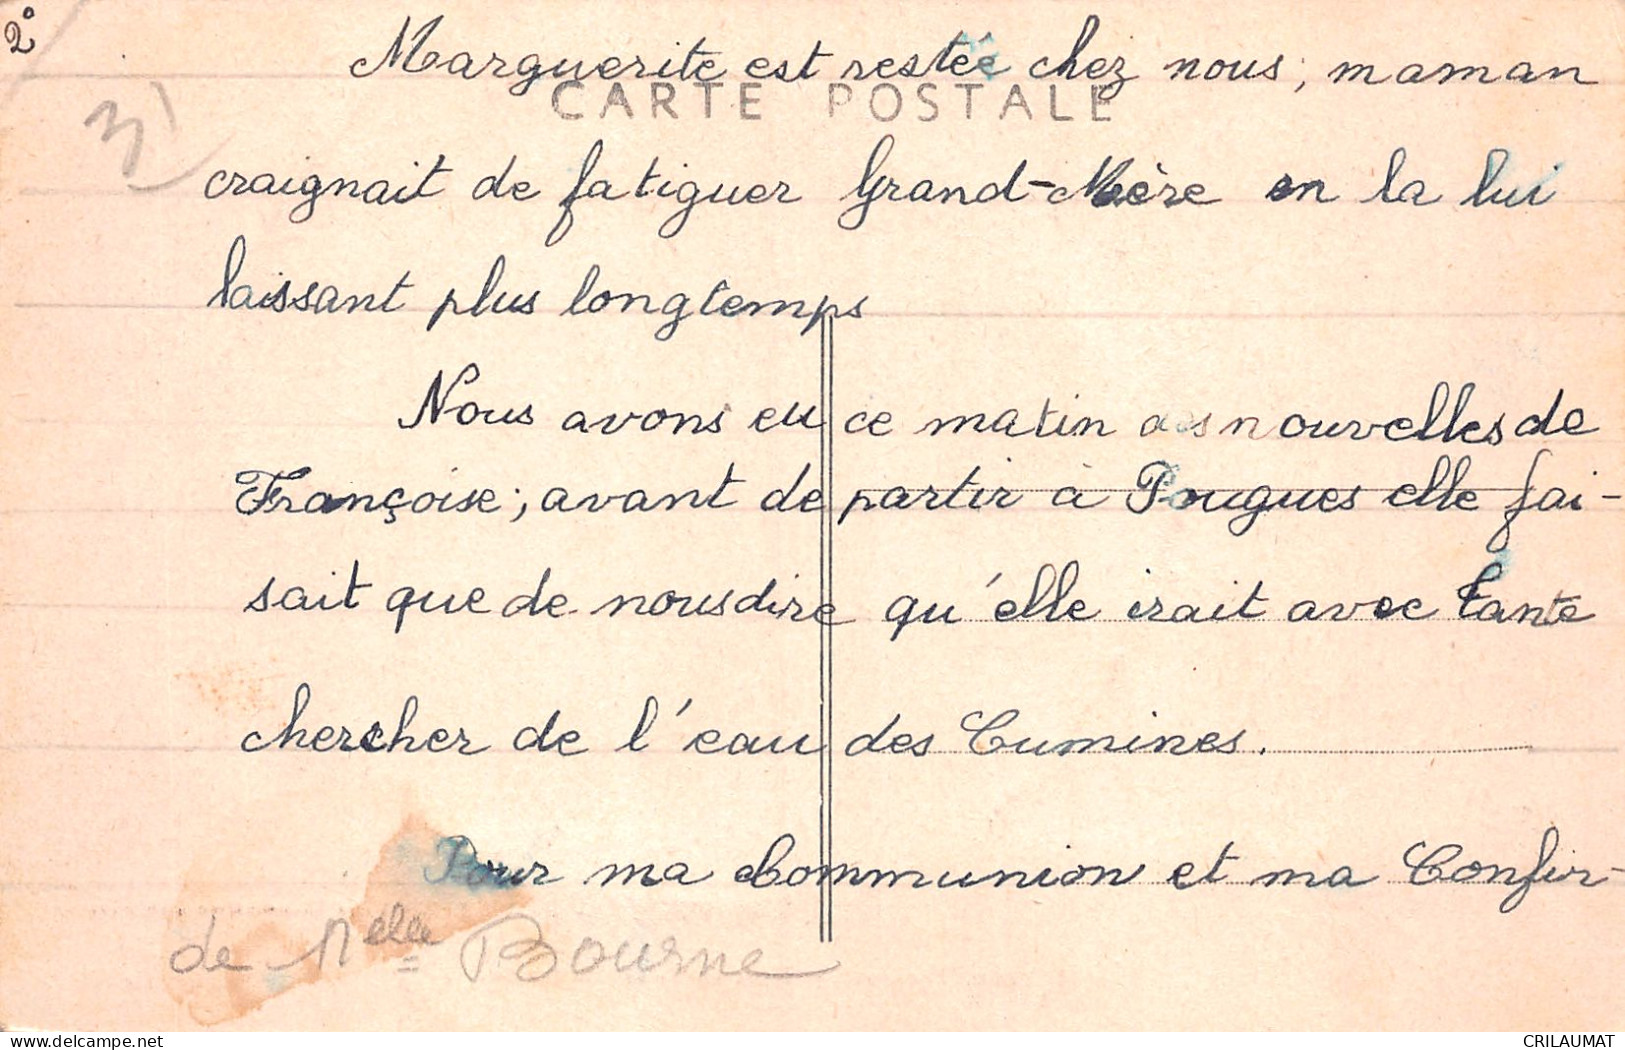 2°
Marguerite est restée chez nous, maman
CARTE POSTALE
3)
craignait de fatiguer Grand-Mère en la lui
laissant plus longtemps
Nous avons eu ce matin des nouvelles de
Françoise; avant de partir à Pougues elle fai-
sait que de nous dire qu'elle irait avec tante
chercher de l'eau des Cumines.
Pour ma Communion et ma Confir-
de Bourne
www.delcampe.net
CRILAUMAT